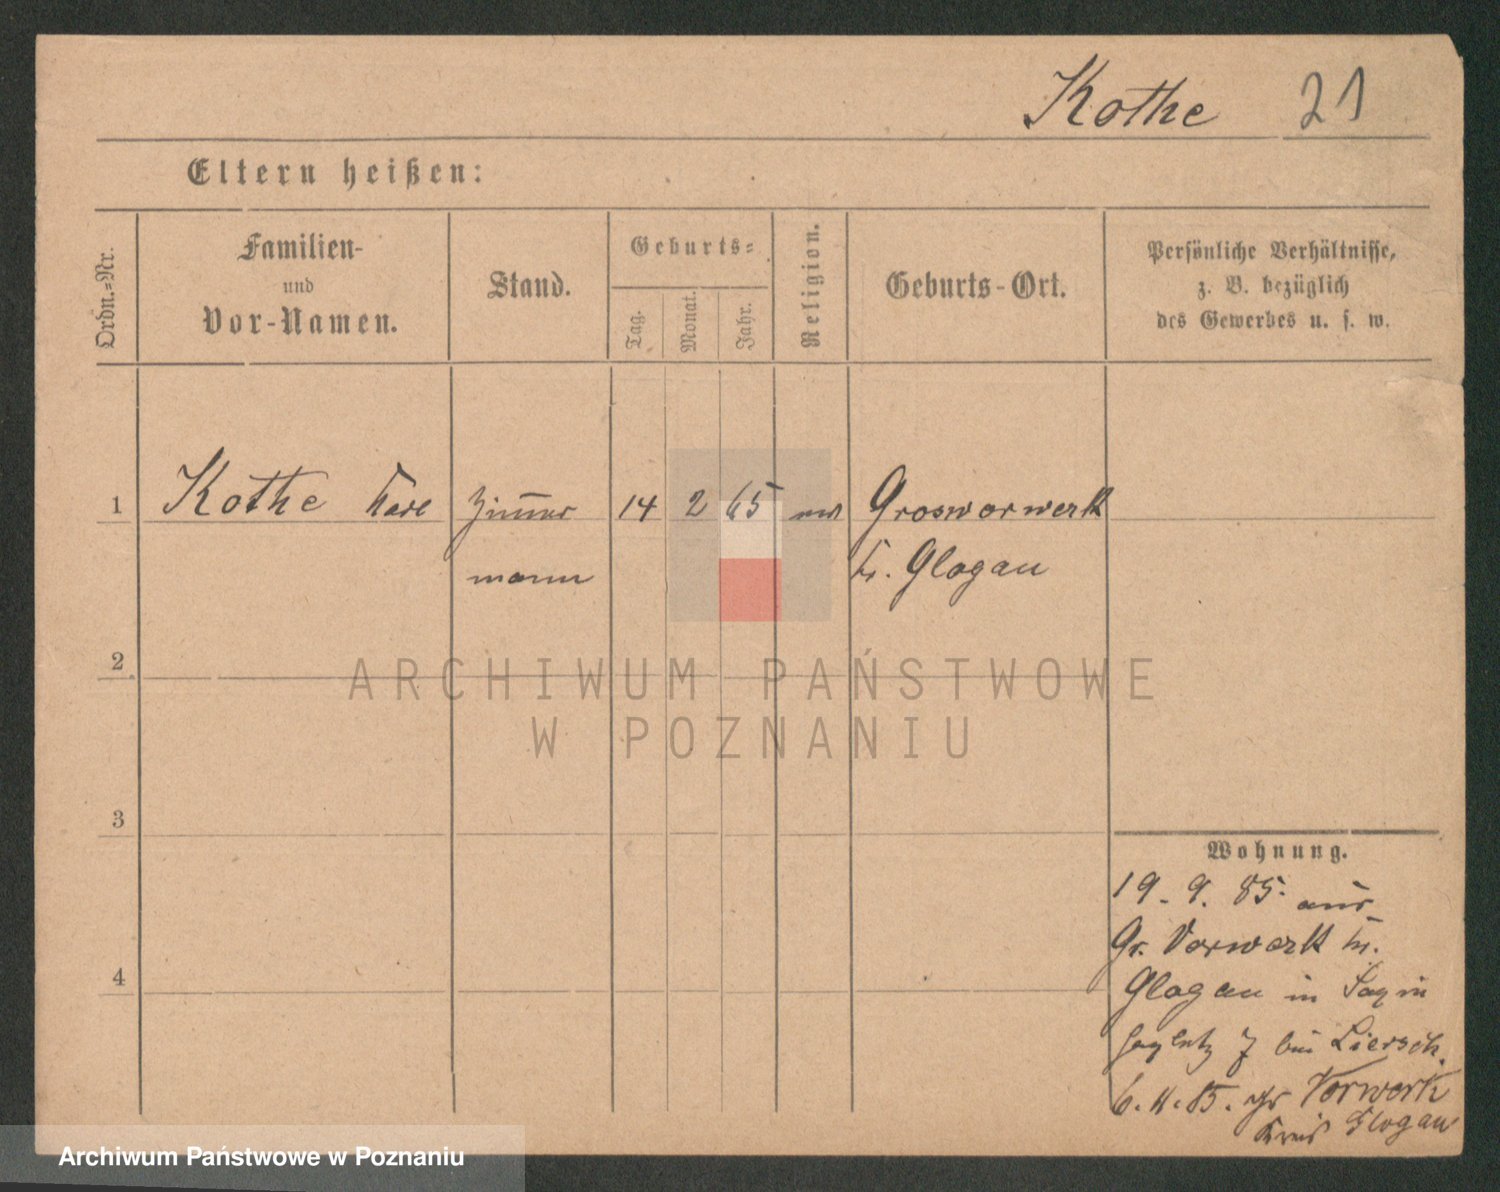 Kothe 21
Eltern heißen:
Ordn.=Nr.
Familien-
und
Vor-Namen.
Stand.
Geburts=
Tag.
Monat.
Jahr.
Religion.
Geburts-Ort.
Persönliche Verhältnisse,
z. B. bezüglich
des Gewerbes u. s. w.
1 Kothe Karl Zimmer 14 2 65 Grosworwerk
mann Kr. Glogau
2
ARCHIWUM PAŃSTWOWE
W POZNANIU
3
Wohnung.
19. 9. 85. aus
Gr. Vorwerk Kr.
4
Glogau in
7 bei Liersch.
6. 11. 85. Vorwerk
Kreis Glogau
Archiwum Państwowe w Poznaniu